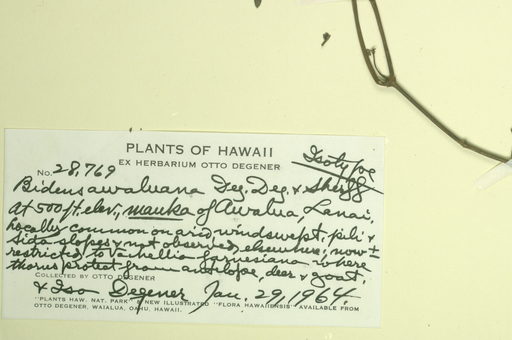 PLANTS OF HAWAII
Isotype
EX HERBARIUM OTTO DEGENER
No. 28,769
Bidens awaluana Deg. Deg. & Sherff
At 500 ft. elev., mauka of Awalua, Lanai,
Locally common on arid, windswept, pili &
Sida slopes & not observed elsewhere, now ±
restricted to Vachellia farnesiana where
thorns protect from antelope, deer & goat.
COLLECTED BY OTTO DEGENER
& Isa Degener Jan. 29, 1964.
"PLANTS HAW. NAT. PARK" & NEW ILLUSTRATED "FLORA HAWAIIENSIS" AVAILABLE FROM
OTTO DEGENER, WAIALUA, OAHU, HAWAII.